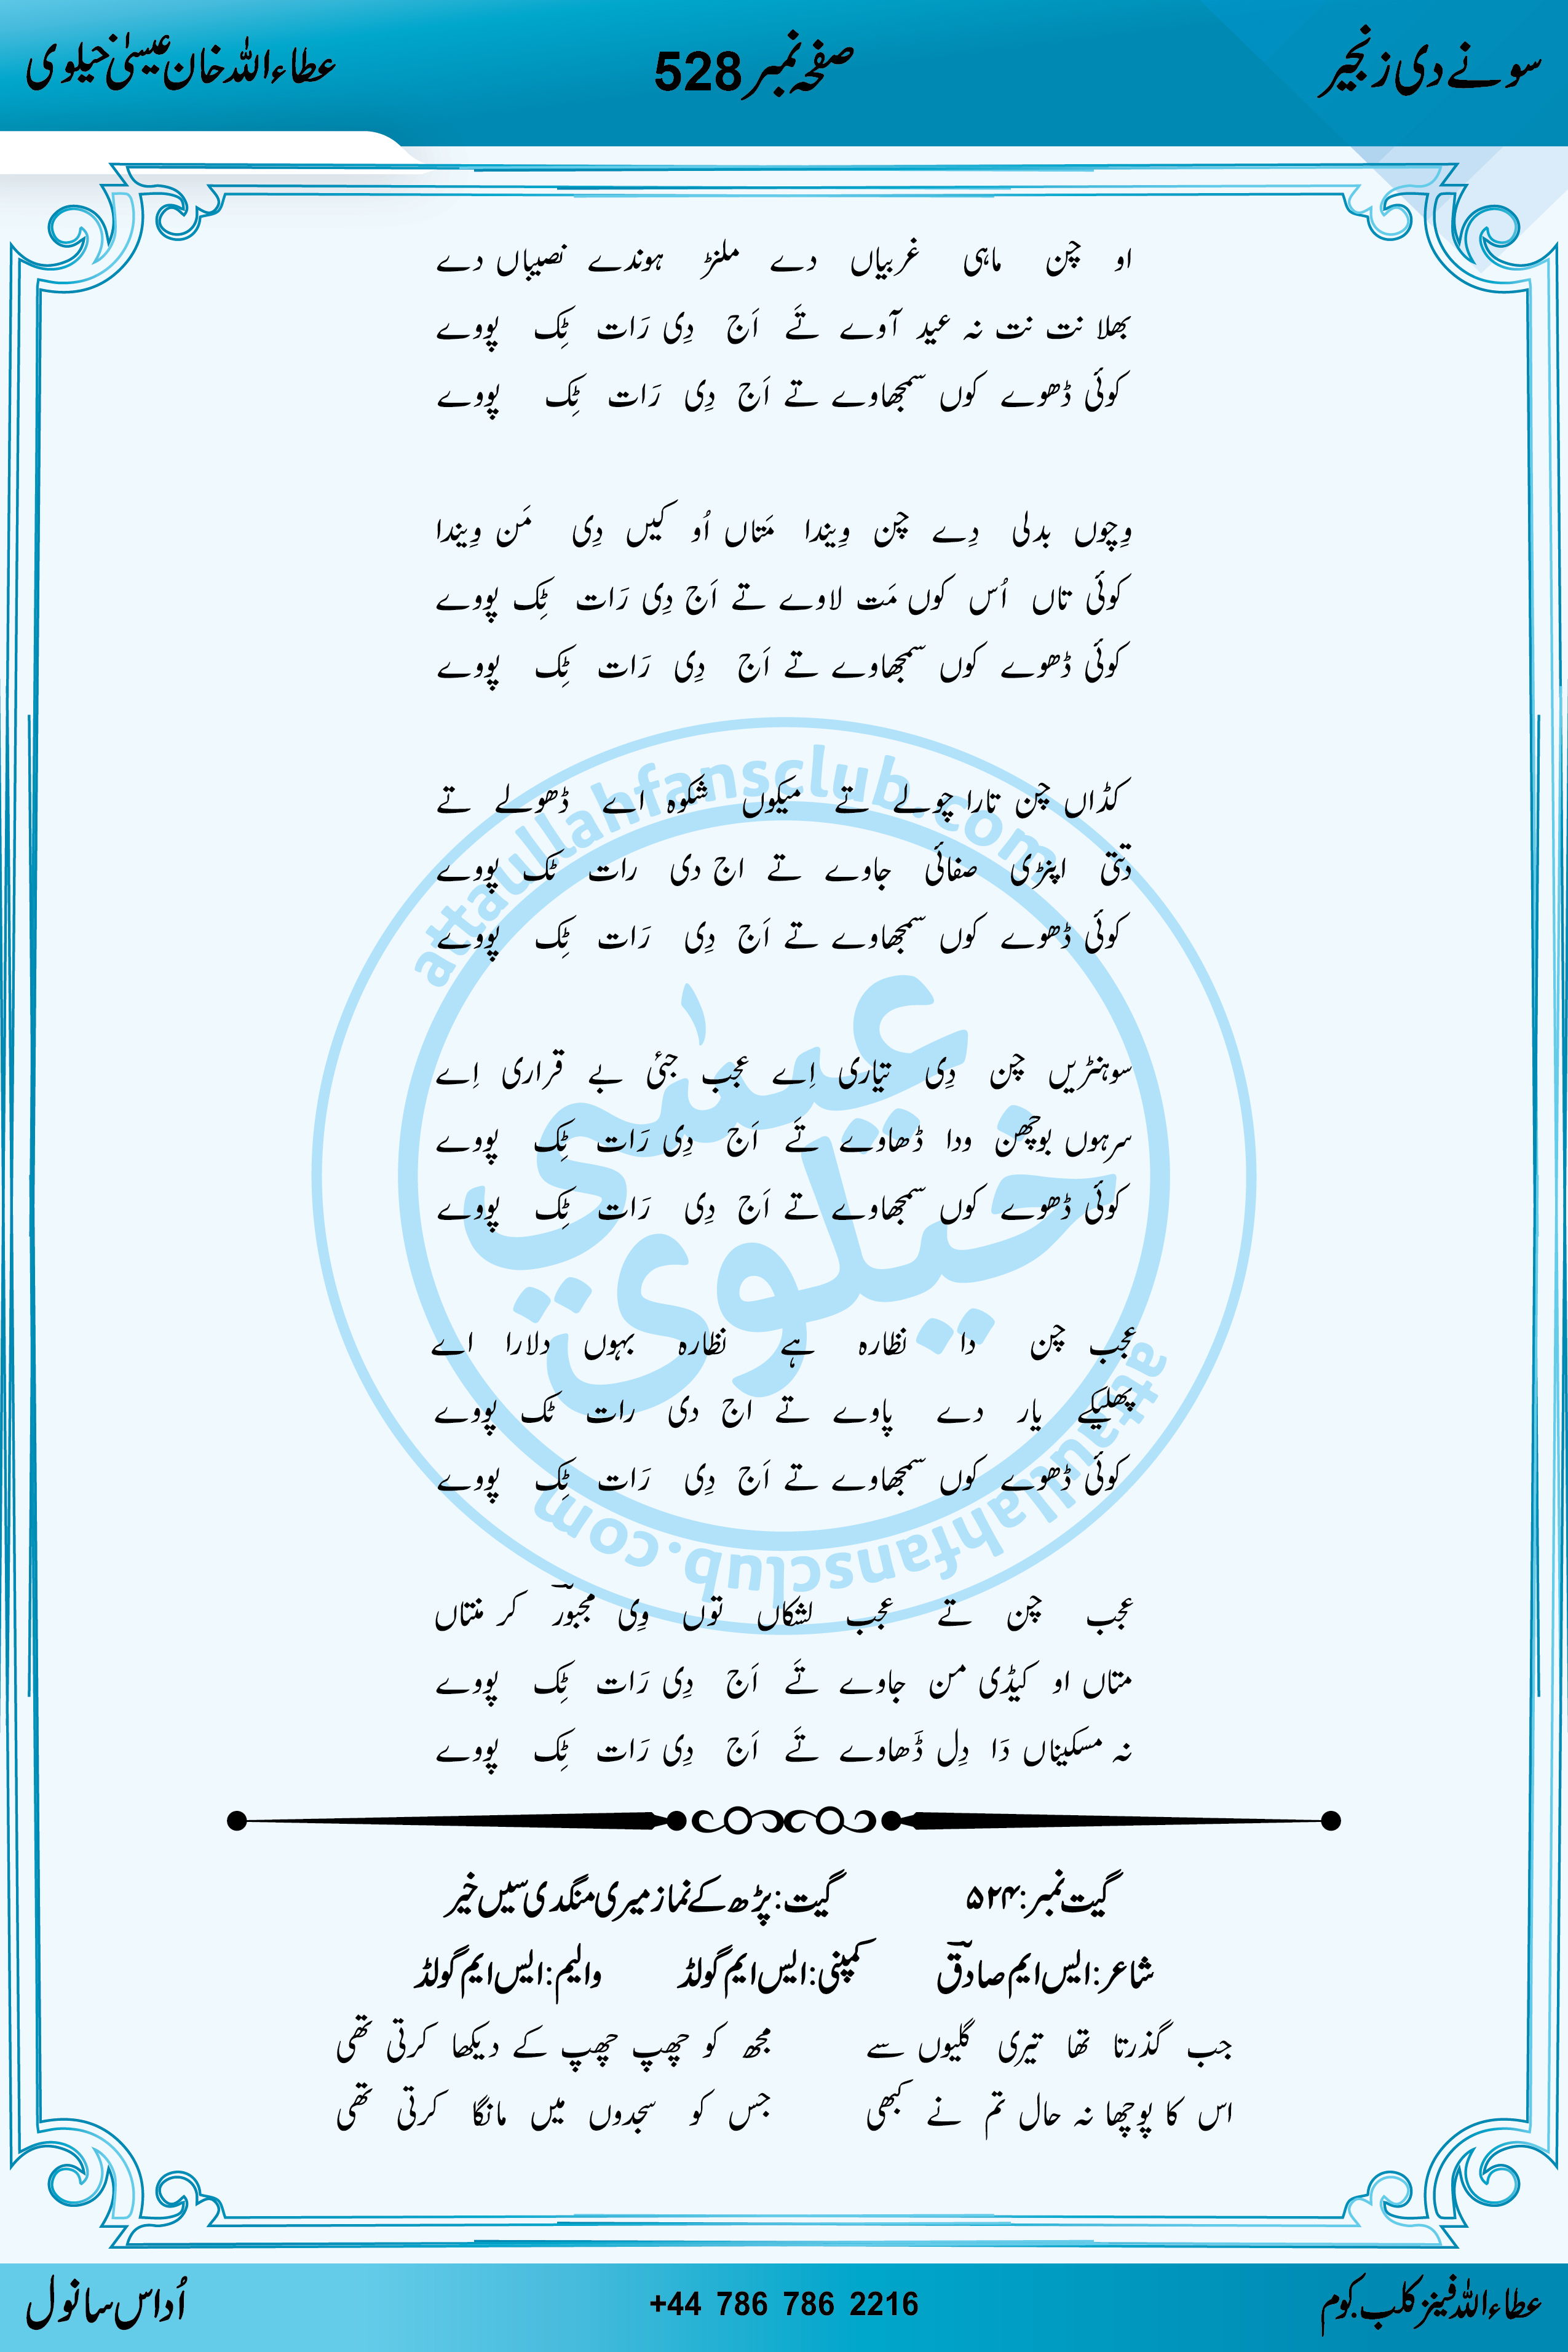 سونے دی زنجیر صفحہ نمبر 528 عطاءاللہ خان عیسیٰ خیلوی
او چن ماہی غریباں دے ملنڑ ہوندے نصیباں دے
بھلا نت نت نہ عید آوے تَے اَج دِی رَات ٹِک پووے
کوئی ڈھوے کوں سمجھاوے تے اَج دِی رَات ٹِک پووے
وِچوں بدلی دِے چن وِیندا مَتاں اُو کیں دِی مَن وِیندا
کوئی تاں اُس کوں مَت لاوے تے اَج دِی رَات ٹِک پووے
کوئی ڈھوے کوں سمجھاوے تے اَج دِی رَات ٹِک پووے
کڈاں چن تارا چولے تے میکوں شکوہ اے ڈھولے تے
دتی اپنڑی صفائی جاوے تے اج دی رات ٹک پووے
کوئی ڈھوے کوں سمجھاوے تے اَج دِی رَات ٹِک پووے
سوہنڑیں چن دِی تیاری اِے عجب جئی بے قراری اِے
سرہوں بوچھن ودا ڈھاوے تَے اَج دِی رَات ٹِک پووے
کوئی ڈھوے کوں سمجھاوے تے اَج دِی رَات ٹِک پووے
عجب چن دا نظارہ ہے نظارہ بہوں دلارا اے
پھلیکے یار دے پاوے تے اج دی رات ٹک پووے
کوئی ڈھوے کوں سمجھاوے تے اَج دِی رَات ٹِک پووے
عجب چن تے عجب لشکاں توں وِی مجبورؔ کر منتاں
متاں او کیڈی من جاوے تَے اَج دِی رَات ٹِک پووے
نہ مسکیناں دَا دِل ڈَھاوے تَے اَج دِی رَات ٹِک پووے
گیت نمبر:۵۲۴ گیت:پڑھ کے نماز میری منگدی سیں خیر
شاعر:ایس ایم صادقؔ کمپنی:ایس ایم گولڈ والیم:ایس ایم گولڈ
جب گذرتا تھا تیری گلیوں سے مجھ کو چھپ چھپ کے دیکھا کرتی تھی
اس کا پوچھا نہ حال تم نے کبھی جس کو سجدوں میں مانگا کرتی تھی
عطاءاللہ فینز کلب.کوم +44 786 786 2216 اُداس سانول
attaullahfansclub.com
عیسیٰ
خیلوی
attaullahfansclub.com